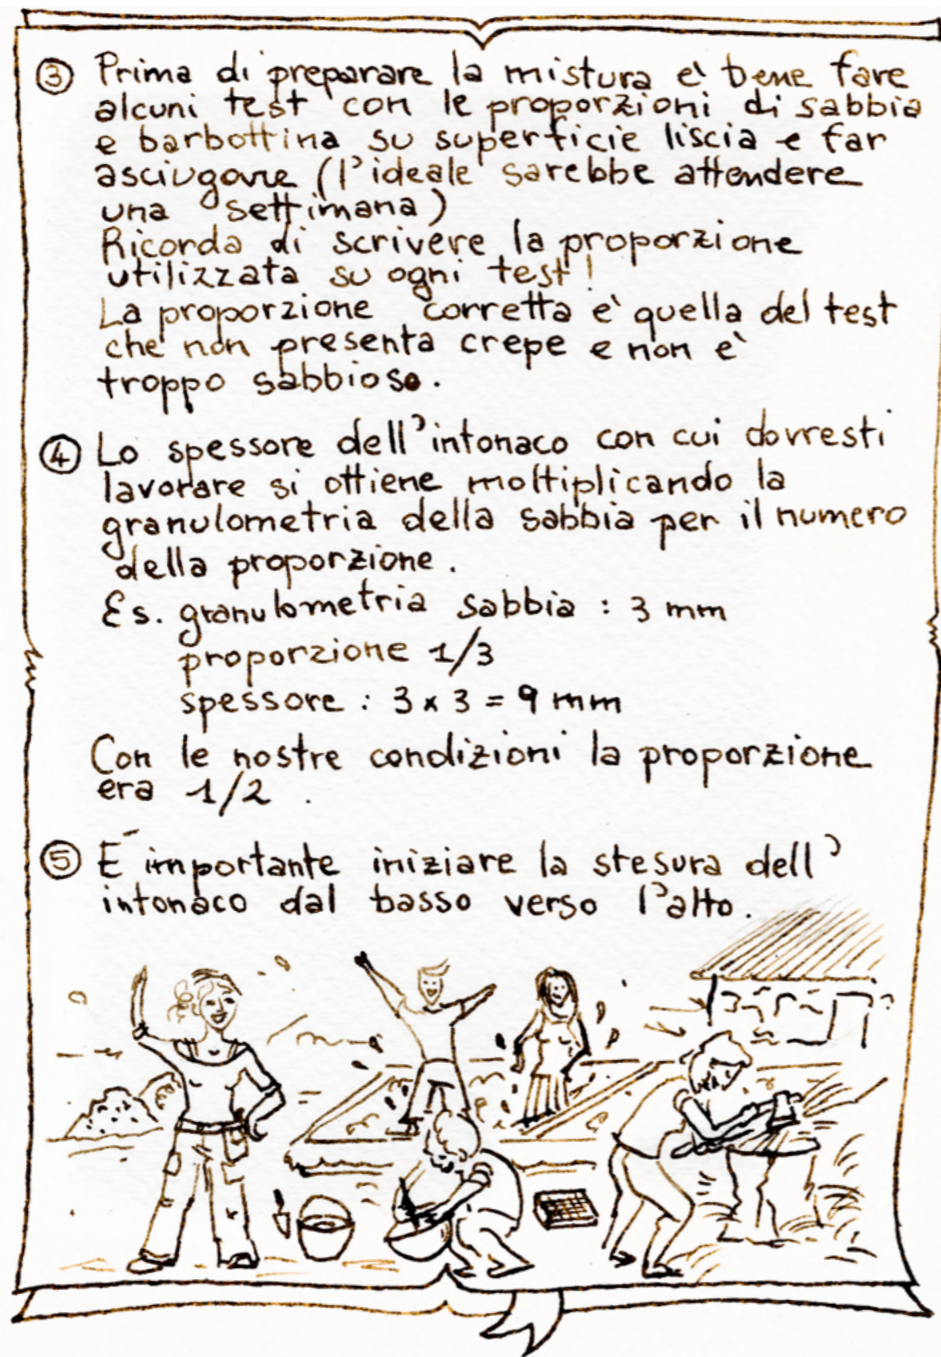 ③ Prima di preparare la mistura e' bene fare
alcuni test con le proporzioni di sabbia
e barbottina su superficie liscia e far
asciugare (l'ideale sarebbe attendere
una settimana)
Ricorda di scrivere la proporzione
utilizzata su ogni test!
La proporzione corretta e' quella del test
che non presenta crepe e non e'
troppo sabbioso.
④ Lo spessore dell'intonaco con cui dovresti
lavorare si ottiene moltiplicando la
granulometria della sabbia per il numero
della proporzione.
Es. granulometria sabbia : 3 mm
proporzione 1/3
spessore : 3 x 3 = 9 mm
Con le nostre condizioni la proporzione
era 1/2 .
⑤ E' importante iniziare la stesura dell'
intonaco dal basso verso l'alto.